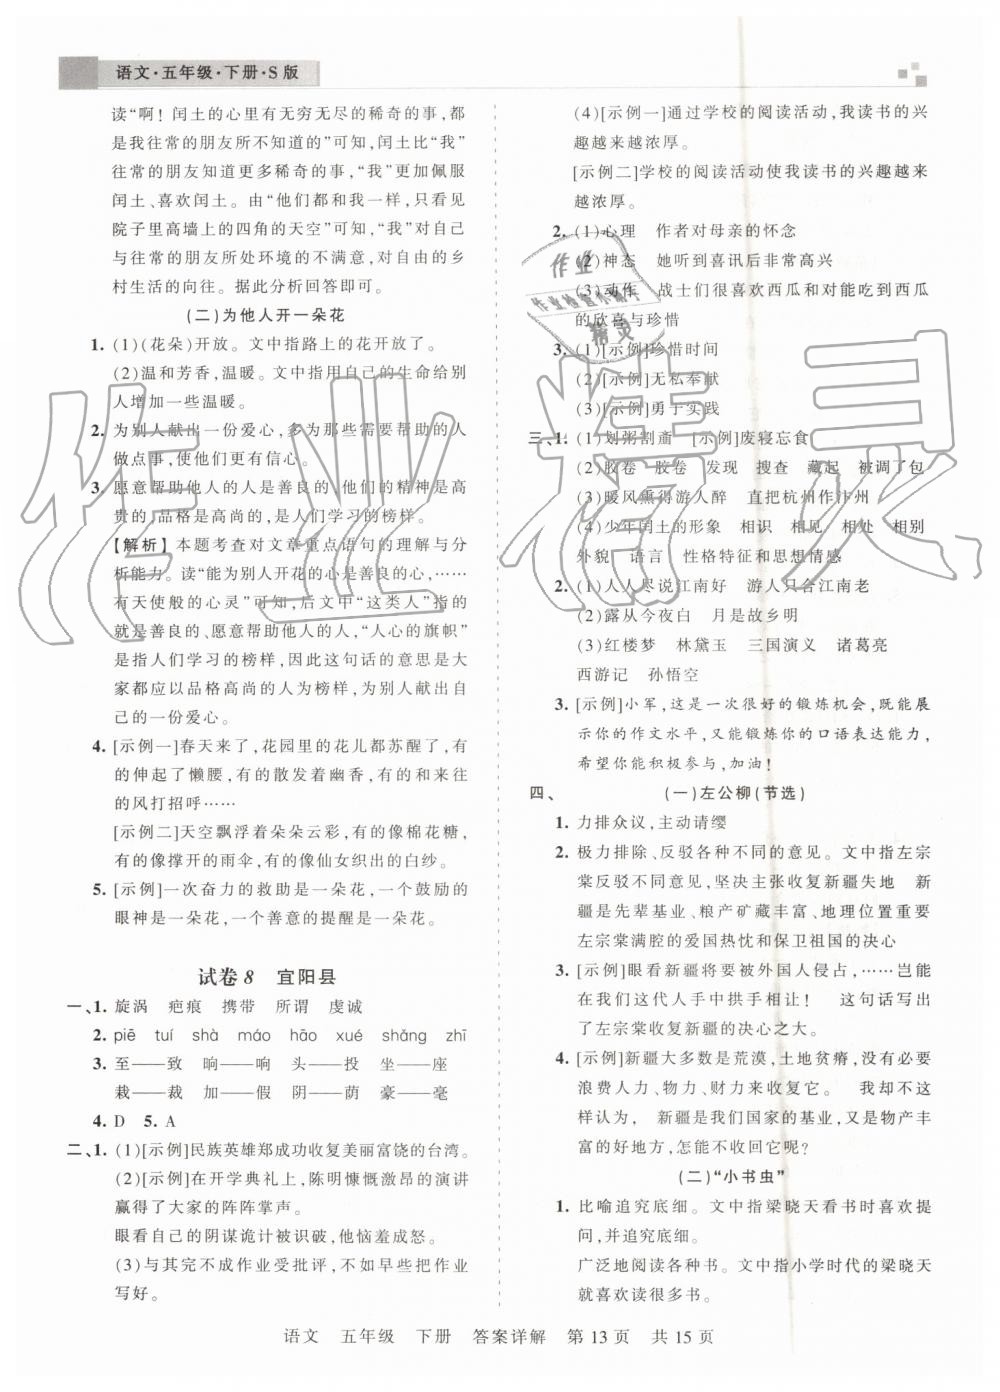 语文·五年级·下册·S版
读“啊！闰土的心里有无穷无尽的稀奇的事，都
是我往常的朋友所不知道的”可知，闰土比“我”
往常的朋友知道更多稀奇的事，“我”更加佩服
闰土、喜欢闰土。由“他们都和我一样，只看见
院子里高墙上的四角的天空”可知，“我”对自己
与往常的朋友所处环境的不满意，对自由的乡
村生活的向往。据此分析回答即可。
(二)为他人开一朵花
1. (1)(花朵)开放。文中指路上的花开放了。
(2)温和芳香，温暖。文中指用自己的生命给别
人增加一些温暖。
2. 为别人献出一份爱心，多为那些需要帮助的人
做点事，使他们更有信心。
3. 愿意帮助他人的人是善良的，他们的精神是高
贵的，品格是高尚的，是人们学习的榜样。
【解析】本题考查对文章重点语句的理解与分
析能力。读“能为别人开花的心是善良的心，……
有天使般的心灵”可知，后文中“这类人”指的
就是善良的、愿意帮助他人的人，“人心的旗帜”
是指人们学习的榜样，因此这句话的意思是大
家都应以品格高尚的人为榜样，为别人献出自
己的一份爱心。
4. [示例一]春天来了，花园里的花儿都苏醒了，有
的伸起了懒腰，有的散发着幽香，有的和来往
的风打招呼……
[示例二]天空飘浮着朵朵云彩，有的像棉花糖，
有的像撑开的雨伞，有的像仙女织出的白纱。
5. [示例]一次奋力的救助是一朵花，一个鼓励的
眼神是一朵花，一个善意的提醒是一朵花。
试卷8 宜阳县
一、1. 旋涡 疤痕 携带 所谓 虔诚
2. piē tuí shà máo hāo xué shǎng zhī
3. 至——致 晌——响 头——投 坐——座
栽——裁 加——假 阴——荫 豪——毫
4. D 5. A
二、1. (1)[示例]民族英雄郑成功收复美丽富饶的台湾。
(2)[示例]在开学典礼上，陈明慷慨激昂的演讲
赢得了大家的阵阵掌声。
眼看自己的阴谋诡计被识破，他恼羞成怒。
(3)与其完不成作业受批评，不如早些把作业
写好。
(4)[示例一]通过学校的阅读活动，我读书的兴
趣越来越浓厚。
[示例二]学校的阅读活动使我读书的兴趣越来
越浓厚。
2. (1)心理 作者对母亲的怀念
(2)神态 她听到喜讯后非常高兴
(3)动作 战士们很喜欢西瓜和对能吃到西瓜
的欣喜与珍惜
3. (1)[示例]珍惜时间
(2)[示例]无私奉献
(3)[示例]勇于实践
三、1. (1)划粥割齑 [示例]废寝忘食
(2)胶卷 胶卷 发现 搜查 藏起 被调了包
(3)暖风熏得游人醉 直把杭州作汴州
(4)少年闰土的形象 相识 相处 相别
外貌 语言 性格特征和思想情感
2. (1)人人尽说江南好 游人只合江南老
(2)露从今夜白 月是故乡明
(3)红楼梦 林黛玉 三国演义 诸葛亮
西游记 孙悟空
3. [示例]小军，这是一次很好的锻炼机会，既能展
示你的作文水平，又能锻炼你的口语表达能力，
希望你能积极参与，加油！
四、 (一)左公柳(节选)
1. 力排众议，主动请缨
2. 极力排除、反驳各种不同的意见。文中指左宗
棠反驳不同意见，坚决主张收复新疆失地 新
疆是先辈基业、粮产矿藏丰富、地理位置重要
左宗棠满腔的爱国热忱和保卫祖国的决心
3. [示例]眼看新疆将要被外国人侵占，……岂能
在我们这代人手中拱手相让！ 这句话写出
了左宗棠收复新疆的决心之大。
4. [示例]新疆大多数是荒漠，土地贫瘠，没有必要
浪费人力、物力、财力来收复它。 我却不这
样认为， 新疆是我们国家的基业，又是物产丰
富的好地方，怎能不收回它呢？
(二)“小书虫”
1. 比喻追究底细。文中指梁晓天看书时喜欢提
问，并追究底细。
广泛地阅读各种书。文中指小学时代的梁晓天
就喜欢读很多书。
语文 五年级 下册 答案详解 第13页 共15页
作业精灵
作业
作业检查小帮手
精灵